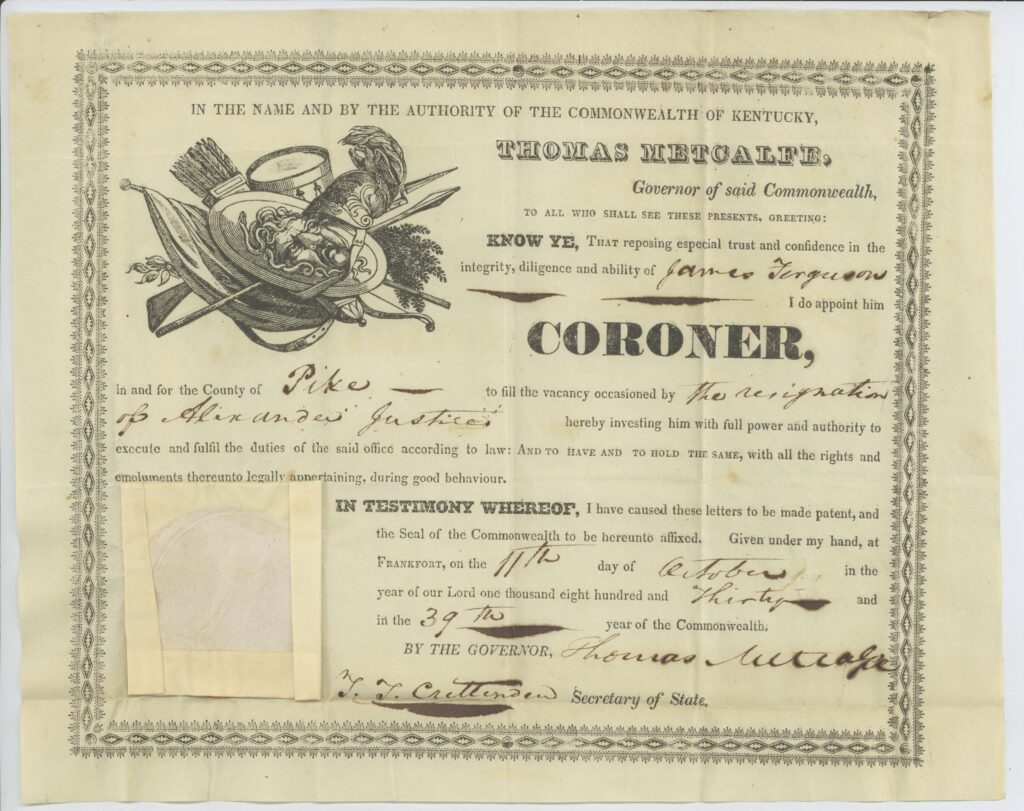 IN THE NAME AND BY THE AUTHORITY OF THE COMMONWEALTH OF KENTUCKY,
THOMAS METCALFE,
Governor of said Commonwealth,
TO ALL WHO SHALL SEE THESE PRESENTS, GREETING:
KNOW YE, THAT reposing especial trust and confidence in the
integrity, diligence and ability of James Ferguson
I do appoint him
CORONER,
in and for the County of Pike — to fill the vacancy occasioned by the resignation
of Alexander Justice hereby investing him with full power and authority to
execute and fulfil the duties of the said office according to law: AND TO HAVE AND TO HOLD THE SAME, with all the rights and
emoluments thereunto legally appertaining, during good behaviour.
IN TESTIMONY WHEREOF, I have caused these letters to be made patent, and
the Seal of the Commonwealth to be hereunto affixed. Given under my hand, at
FRANKFORT, on the 11th day of October in the
year of our Lord one thousand eight hundred and Thirty and
in the 39th year of the Commonwealth.
BY THE GOVERNOR, Thomas Metcalfe
T. T. Crittenden Secretary of State.